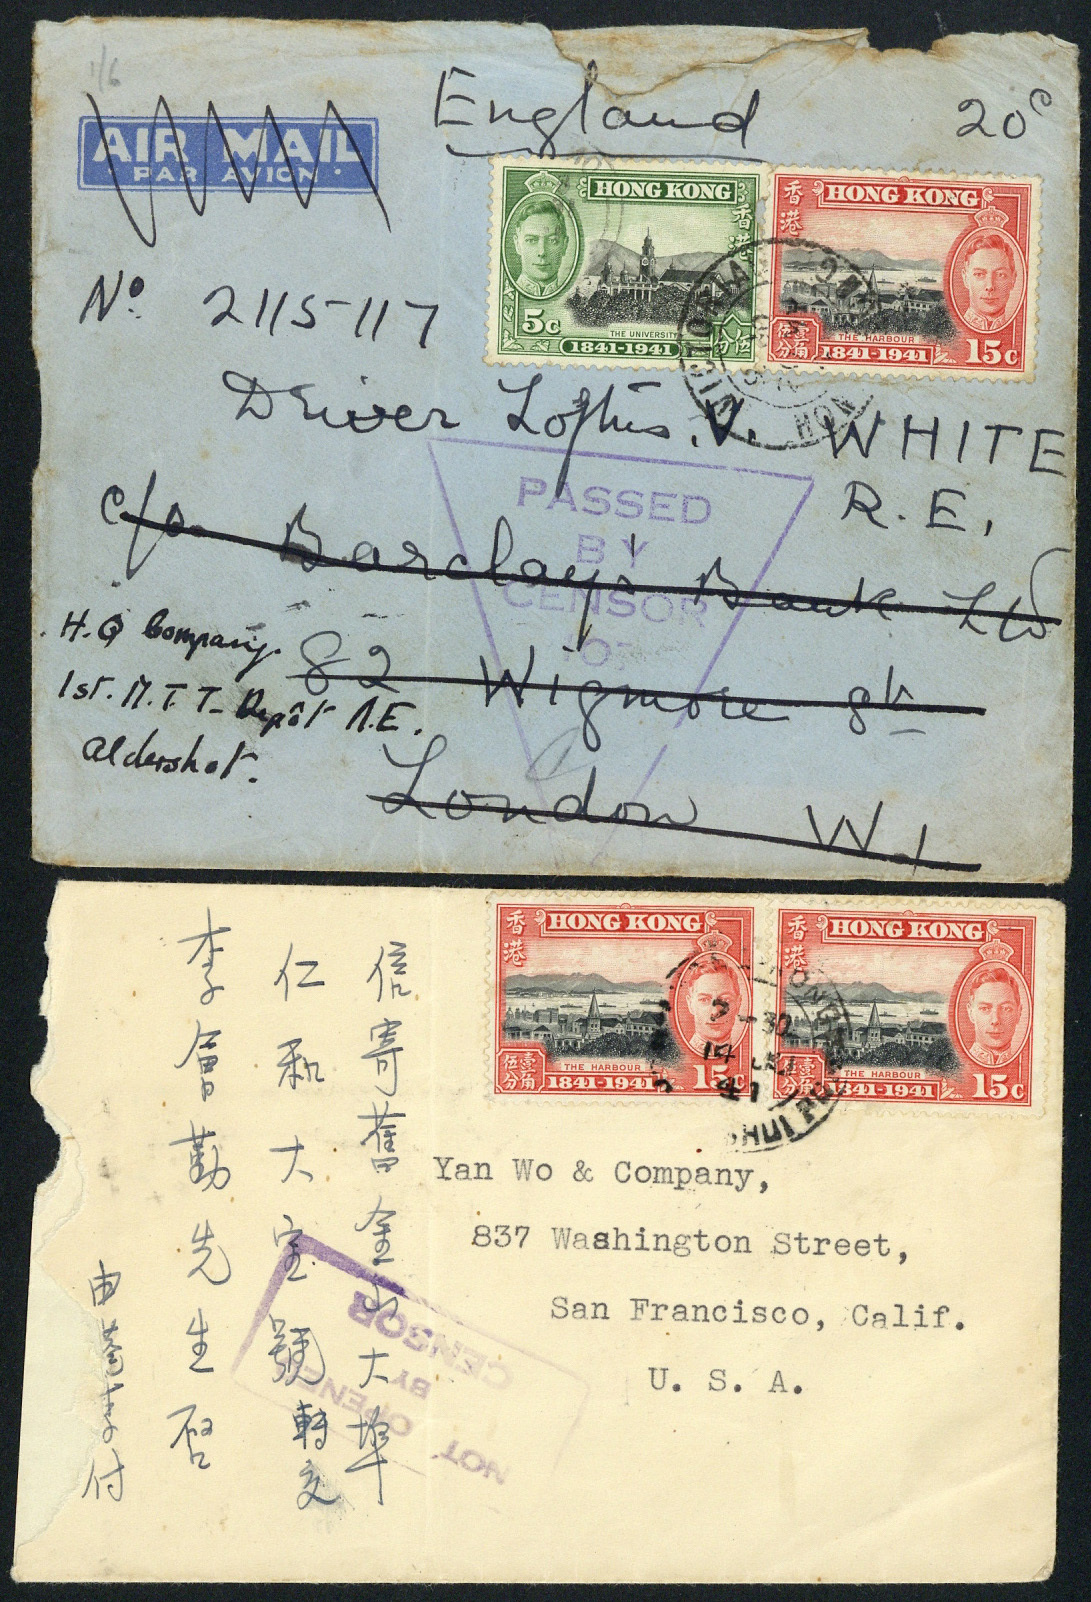 1/6
AIR MAIL
PAR AVION
England
20c
HONG KONG
香港
5c
THE UNIVERSITY
1841-1941
伍分
HONG KONG
香港
THE HARBOUR
1841-1941
伍分 壹角
15c
VICTORIA
HONG
No. 2115117
Driver Loftus. V. WHITE
R.E,
c/o Barclay's Bank Ltd
82 Wigmore St
London W.1
PASSED
BY
CENSOR
H.Q Company.
1st. M.T.T. Depôt R.E.
Aldershot.
HONG KONG
香港
THE HARBOUR
1841-1941
伍分 壹角
15c
HONG KONG
香港
THE HARBOUR
1841-1941
伍分 壹角
15c
2-30
14
41
HONG
信寄舊金山大埠
仁和大宝號轉交
李會勤先生啓
由
付
Yan Wo & Company,
837 Washington Street,
San Francisco, Calif.
U. S. A.
NOT OPENED
BY
CENSOR